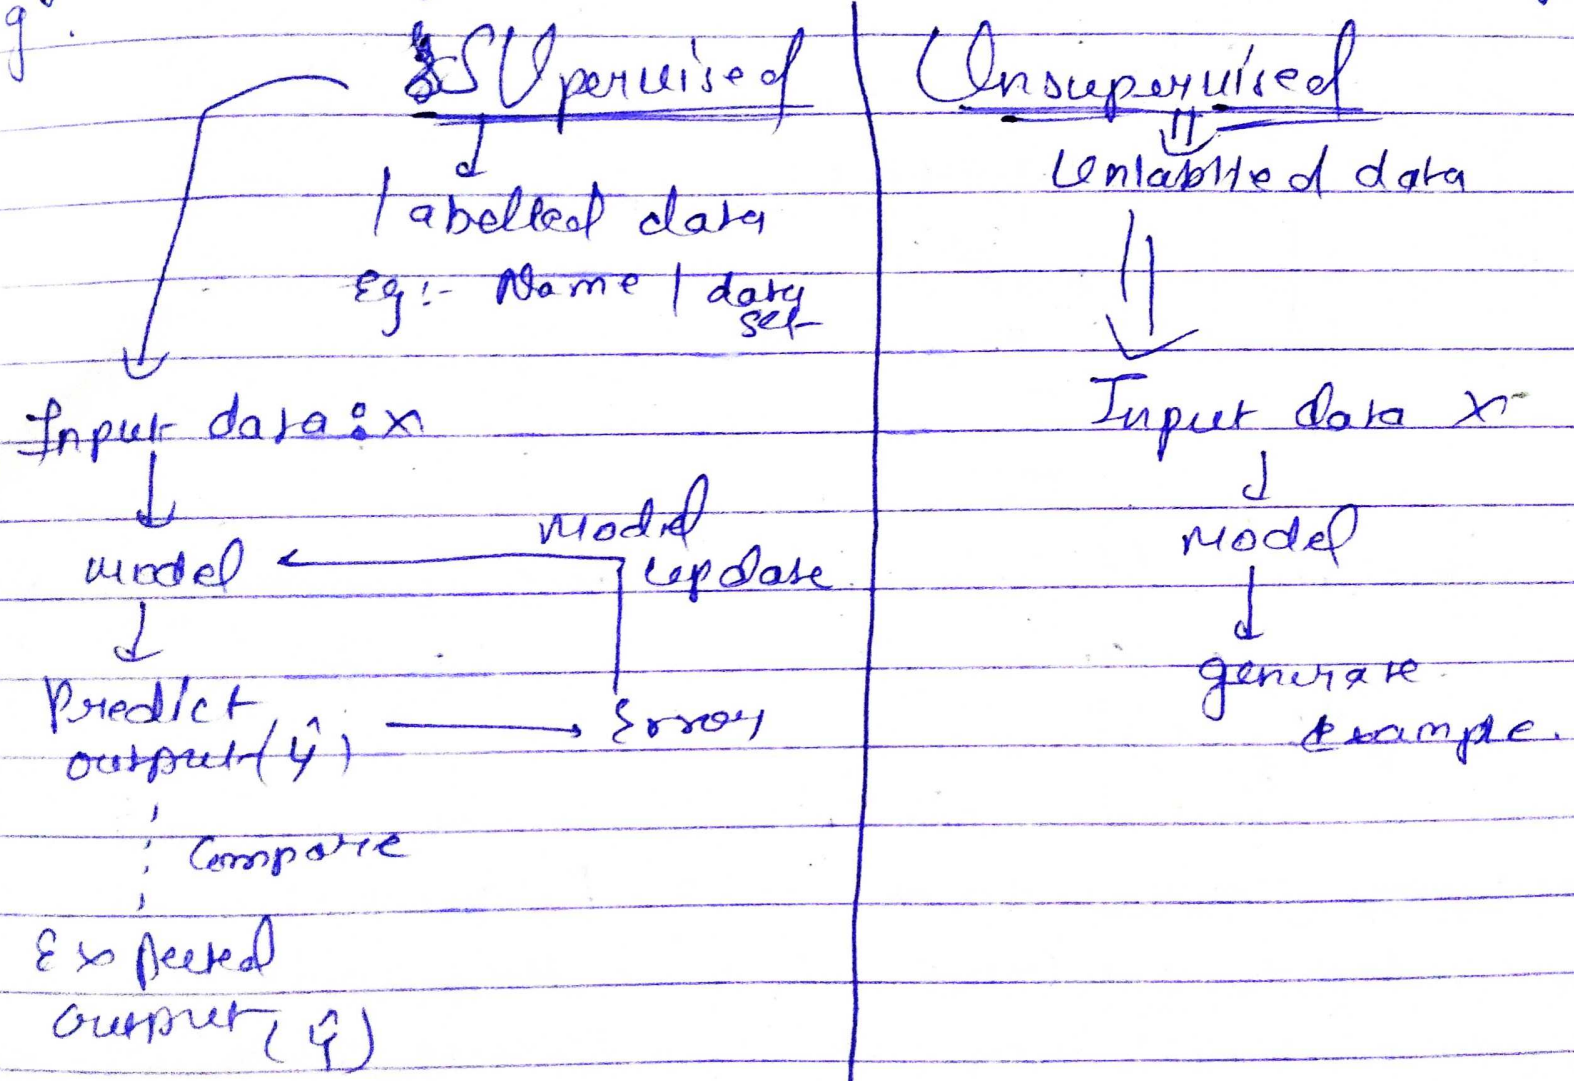 g.
Supervised
labelled data
Eg:- Name | data
set
Input data: x
model
Model
update
Predict
output (ŷ)
Error
Compare
Expected
output (ŷ)
Unsupervised
Unlablled data
Input data x
Model
generate
example.